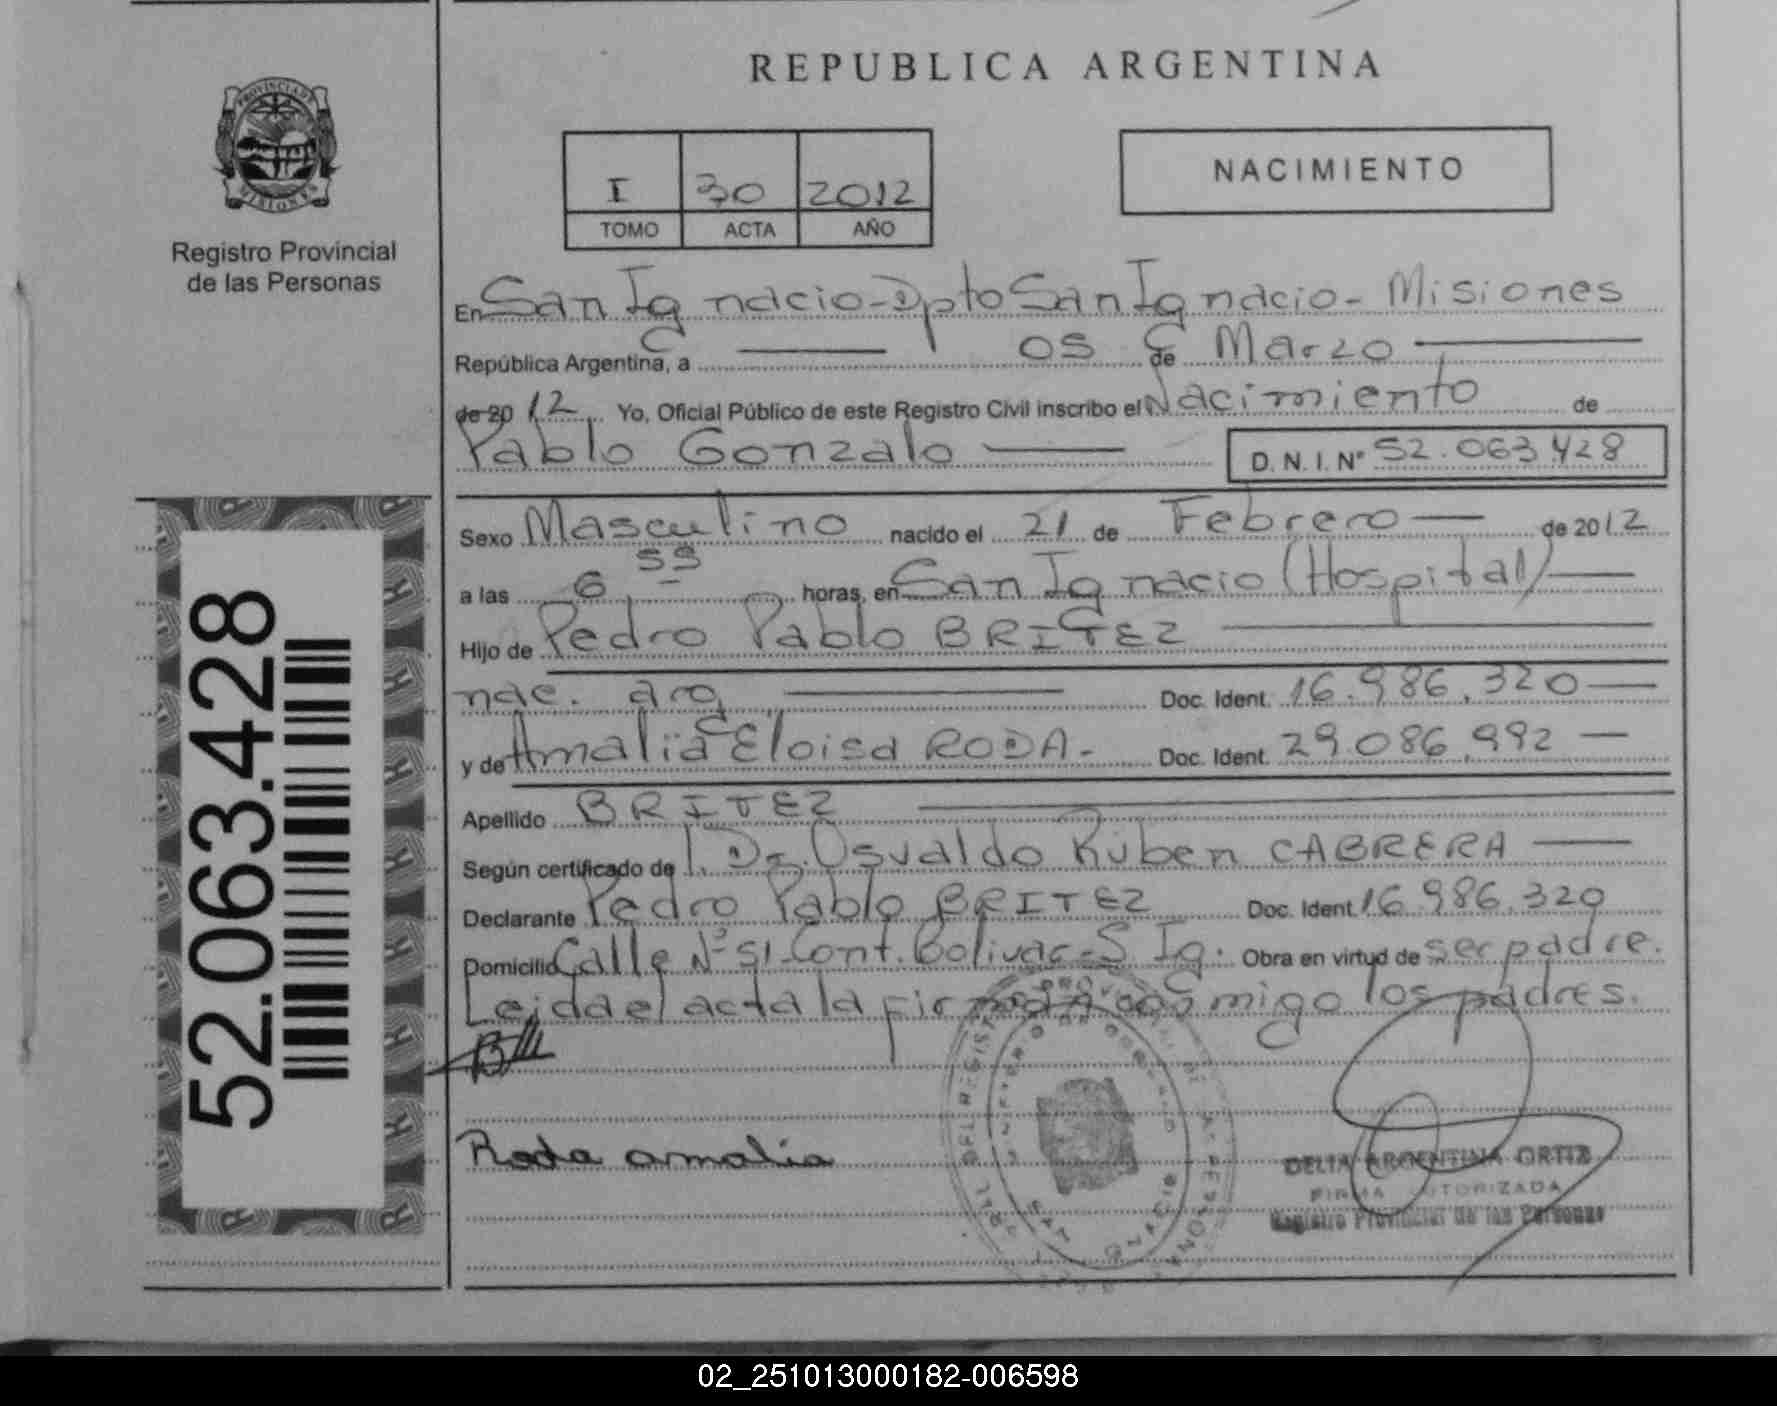 REPUBLICA ARGENTINA
PROVINCIA DE
MISIONES
Registro Provincial
de las Personas
I 30 2012
TOMO ACTA AÑO
NACIMIENTO
En San Ignacio - Dpto San Ignacio - Misiones
República Argentina, a 05 de Marzo
de 2012 Yo, Oficial Público de este Registro Civil inscribo el Nacimiento de
Pablo Gonzalo D. N. I. Nº 52.063.428
Sexo Masculino nacido el 21 de Febrero de 2012
a las 6 55 horas, en San Ignacio (Hospital)
Hijo de Pedro Pablo BRITEZ
nac. arg Doc. Ident. 16.986.320
y de Amalia Eloisa RODA - Doc. Ident. 29.086.992
Apellido BRITEZ
Según certificado de Dr. Osvaldo Ruben CABRERA
Declarante Pedro Pablo BRITEZ Doc. Ident. 16.986.320
Domicilio Calle Nº 51. Cont. Bolivar - S. Ig. Obra en virtud de ser padre.
Leida el acta la firman conmigo los padres.
Roda amalia
DELIA ARGENTINA ORTIZ
FIRMA AUTORIZADA
Registro Provincial de las Personas
52.063.428
02_251013000182-006598